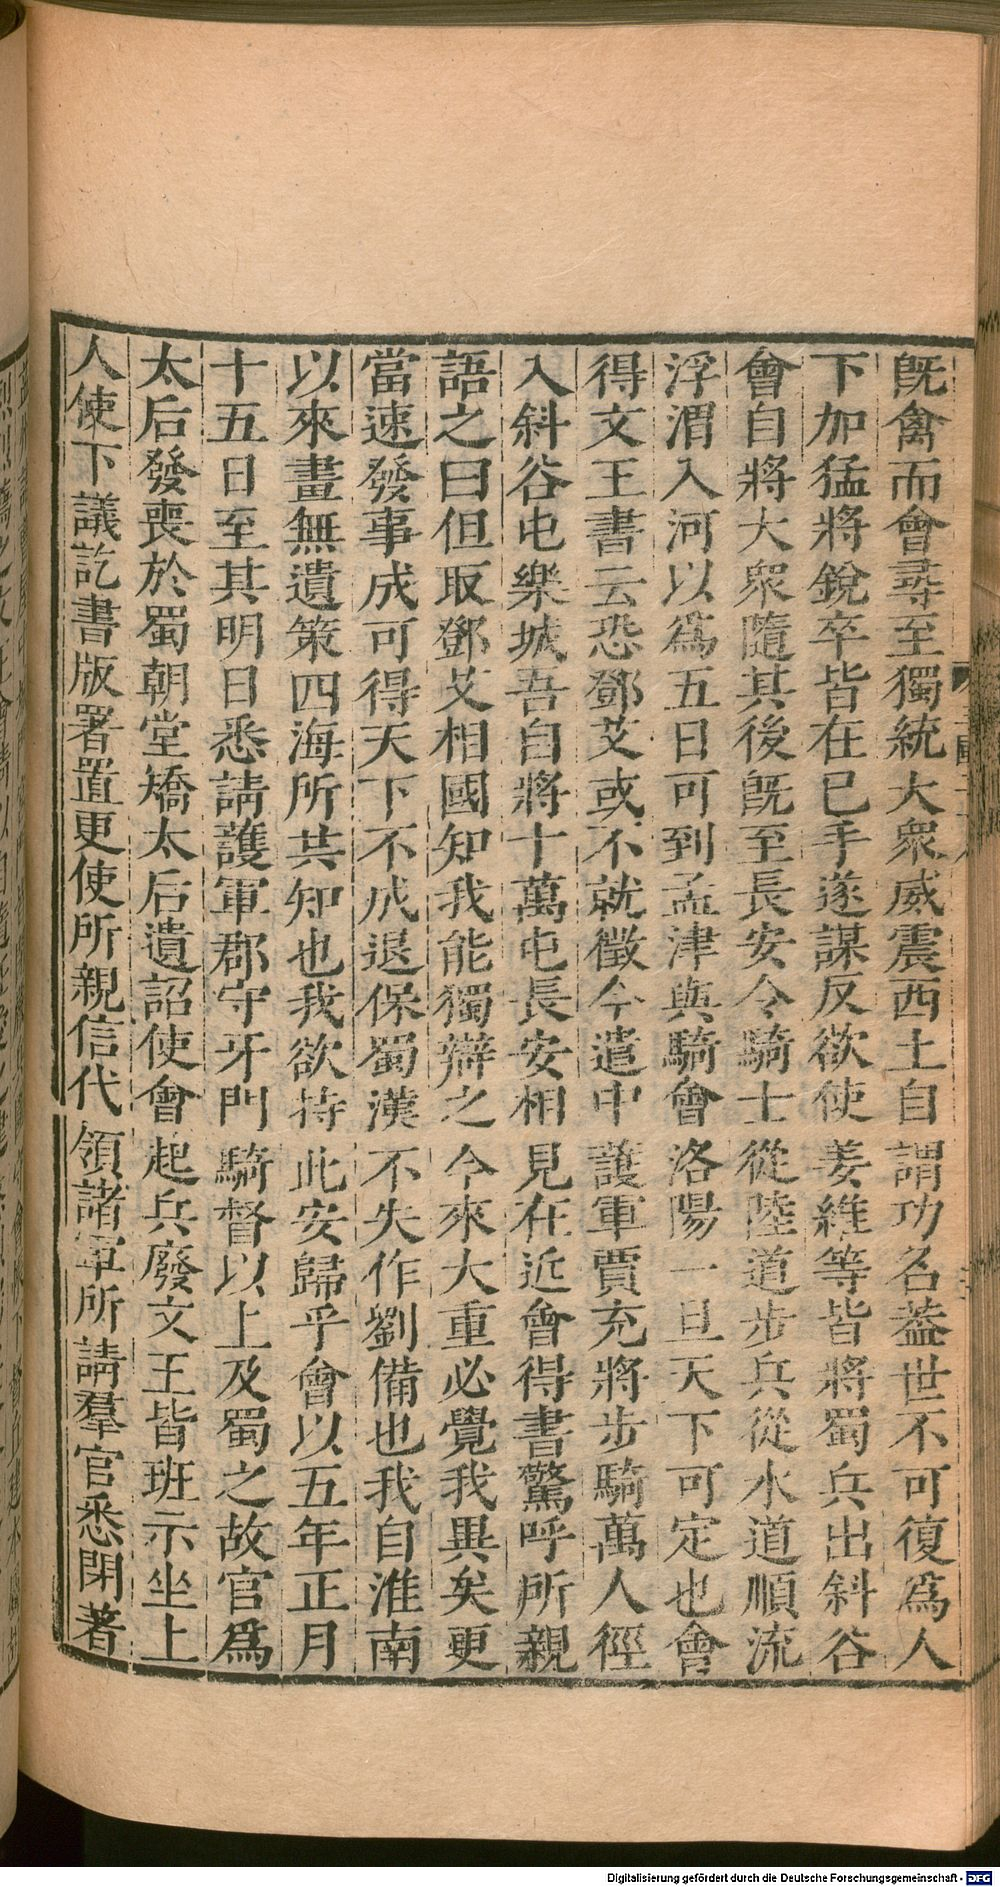 既禽而會尋至獨統大衆威震西土自謂功名葢世不可復爲人
下加猛將銳卒皆在已手遂謀反欲使姜維等皆將蜀兵出斜谷
會自將大衆隨其後既至長安令騎士從陸道步兵從水道順流
浮渭入河以爲五日可到孟津與騎會洛陽一旦天下可定也會
得文王書云恐鄧艾或不就徵今遣中護軍賈充將步騎萬人徑
入斜谷屯樂城吾自將十萬屯長安相見在近會得書驚呼所親
語之曰但取鄧艾相國知我能獨辦之今來大重必覺我異矣更
當速發事成可得天下不成退保蜀漢不失作劉備也我自淮南
以來畫無遺策四海所共知也我欲持此安歸乎會以五年正月
十五日至其明日悉請護軍郡守牙門騎督以上及蜀之故官爲
太后發喪於蜀朝堂矯太后遺詔使會起兵廢文王皆班示坐上
人使下議訖書版署置更使所親信代領諸軍所請羣官悉閉著
Digitalisierung gefördert durch die Deutsche Forschungsgemeinschaft - DFG